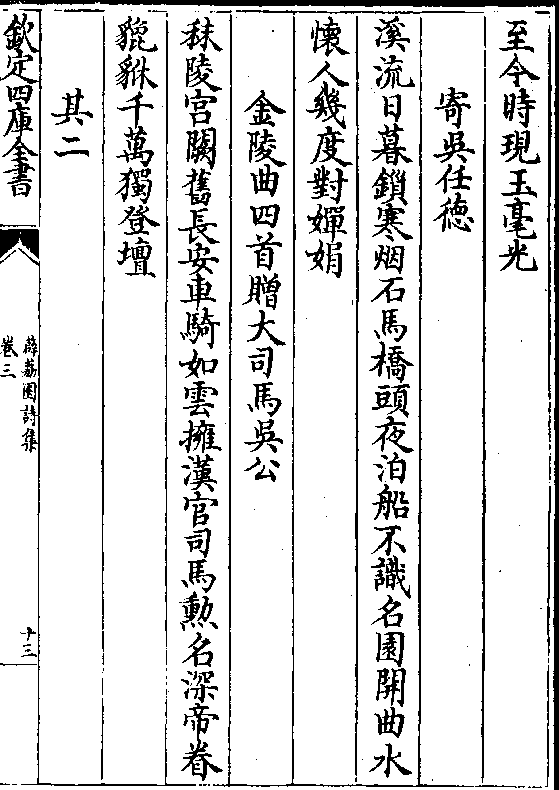 至今時現玉毫光
寄吳任德
溪流日暮鎖寒烟石馬橋頭夜泊船不識名園開曲水
懷人幾度對嬋娟
金陵曲四首贈大司馬吳公
秣陵宮闕舊長安車騎如雲擁漢官司馬勲名深帝眷
貔貅千萬獨登壇
其二
欽定四庫全書
薜荔園詩集
卷三
十三